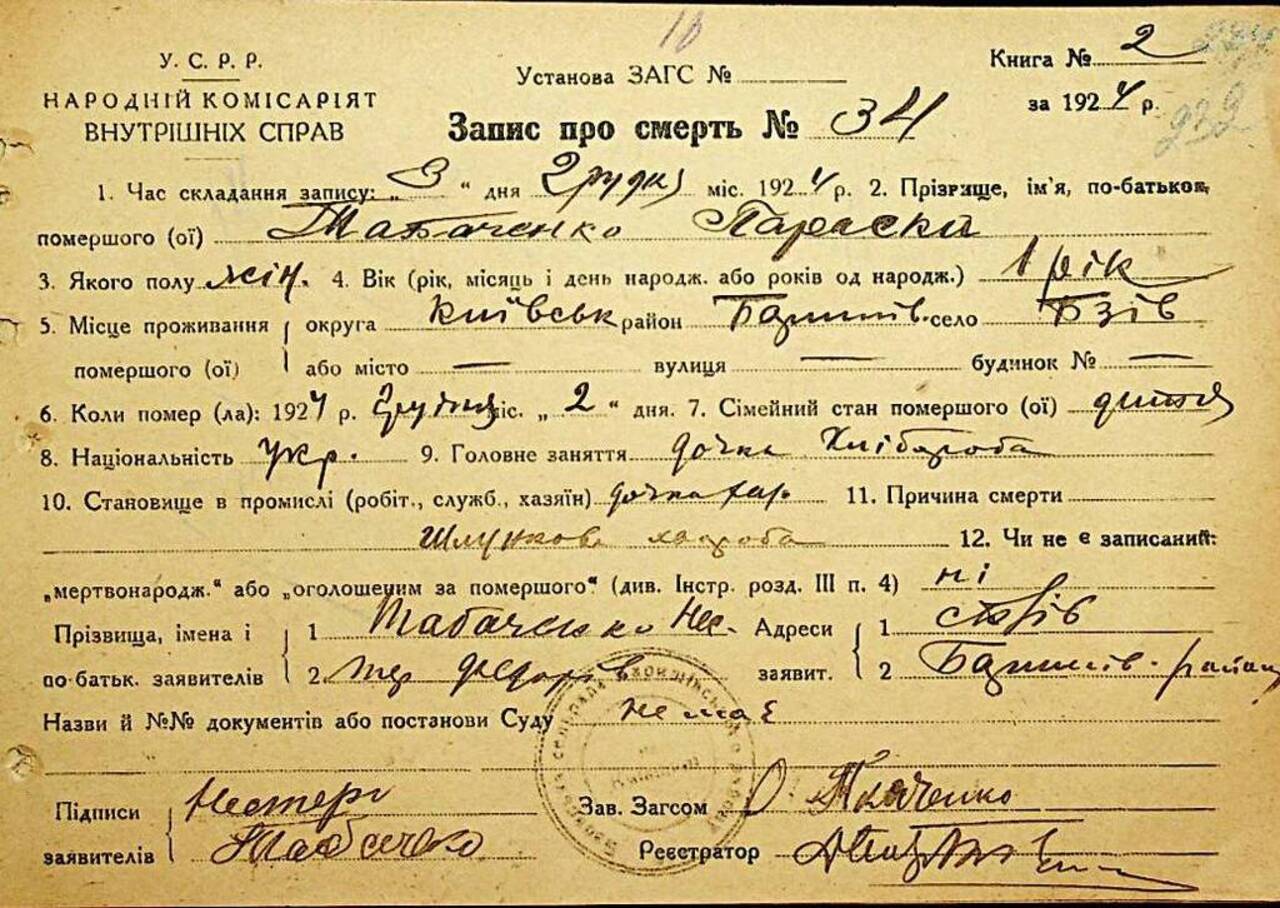 10
У. С. Р. Р.
НАРОДНІЙ КОМІСАРІЯТ
ВНУТРІШНІХ СПРАВ
Установа ЗАГС №
Книга № 2
за 1924 р.
232
Запис про смерть № 34
1. Час складання запису: „ 3 “ дня Грудня міс. 1924 р. 2. Прізвище, ім'я, по-батькові,
помершого (ої) Табаченко Параска
3. Якого полу жін. 4. Вік (рік, місяць і день народж. або років од народж.) 1 рік
5. Місце проживання помершого (ої) округа Київськ район Баришів. село Бзів
або місто — вулиця — будинок № —
6. Коли помер (ла): 1924 р. Грудня міс. „ 2 “ дня. 7. Сімейний стан помершого (ої) дитя
8. Національність Укр. 9. Головне заняття дочка Хлібороба
10. Становище в промислі (робіт., служб., хазяїн) дочка хаз. 11. Причина смерти
Шлункова хвороба 12. Чи не є записаний:
„мертвонародж.“ або „оголошеним за помершого“ (див. Інстр. розд. III п. 4) ні
Прізвища, імена і по батьк. заявителів 1 Табаченко Нес- Адреси заявит. 1
2 тер Федорів 2 Баришів. району
Назви й №№ документів або постанови Суду не має
Підписи заявителів Нестер Зав. Загсом О. Ткаченко
Табаченко Реєстратор